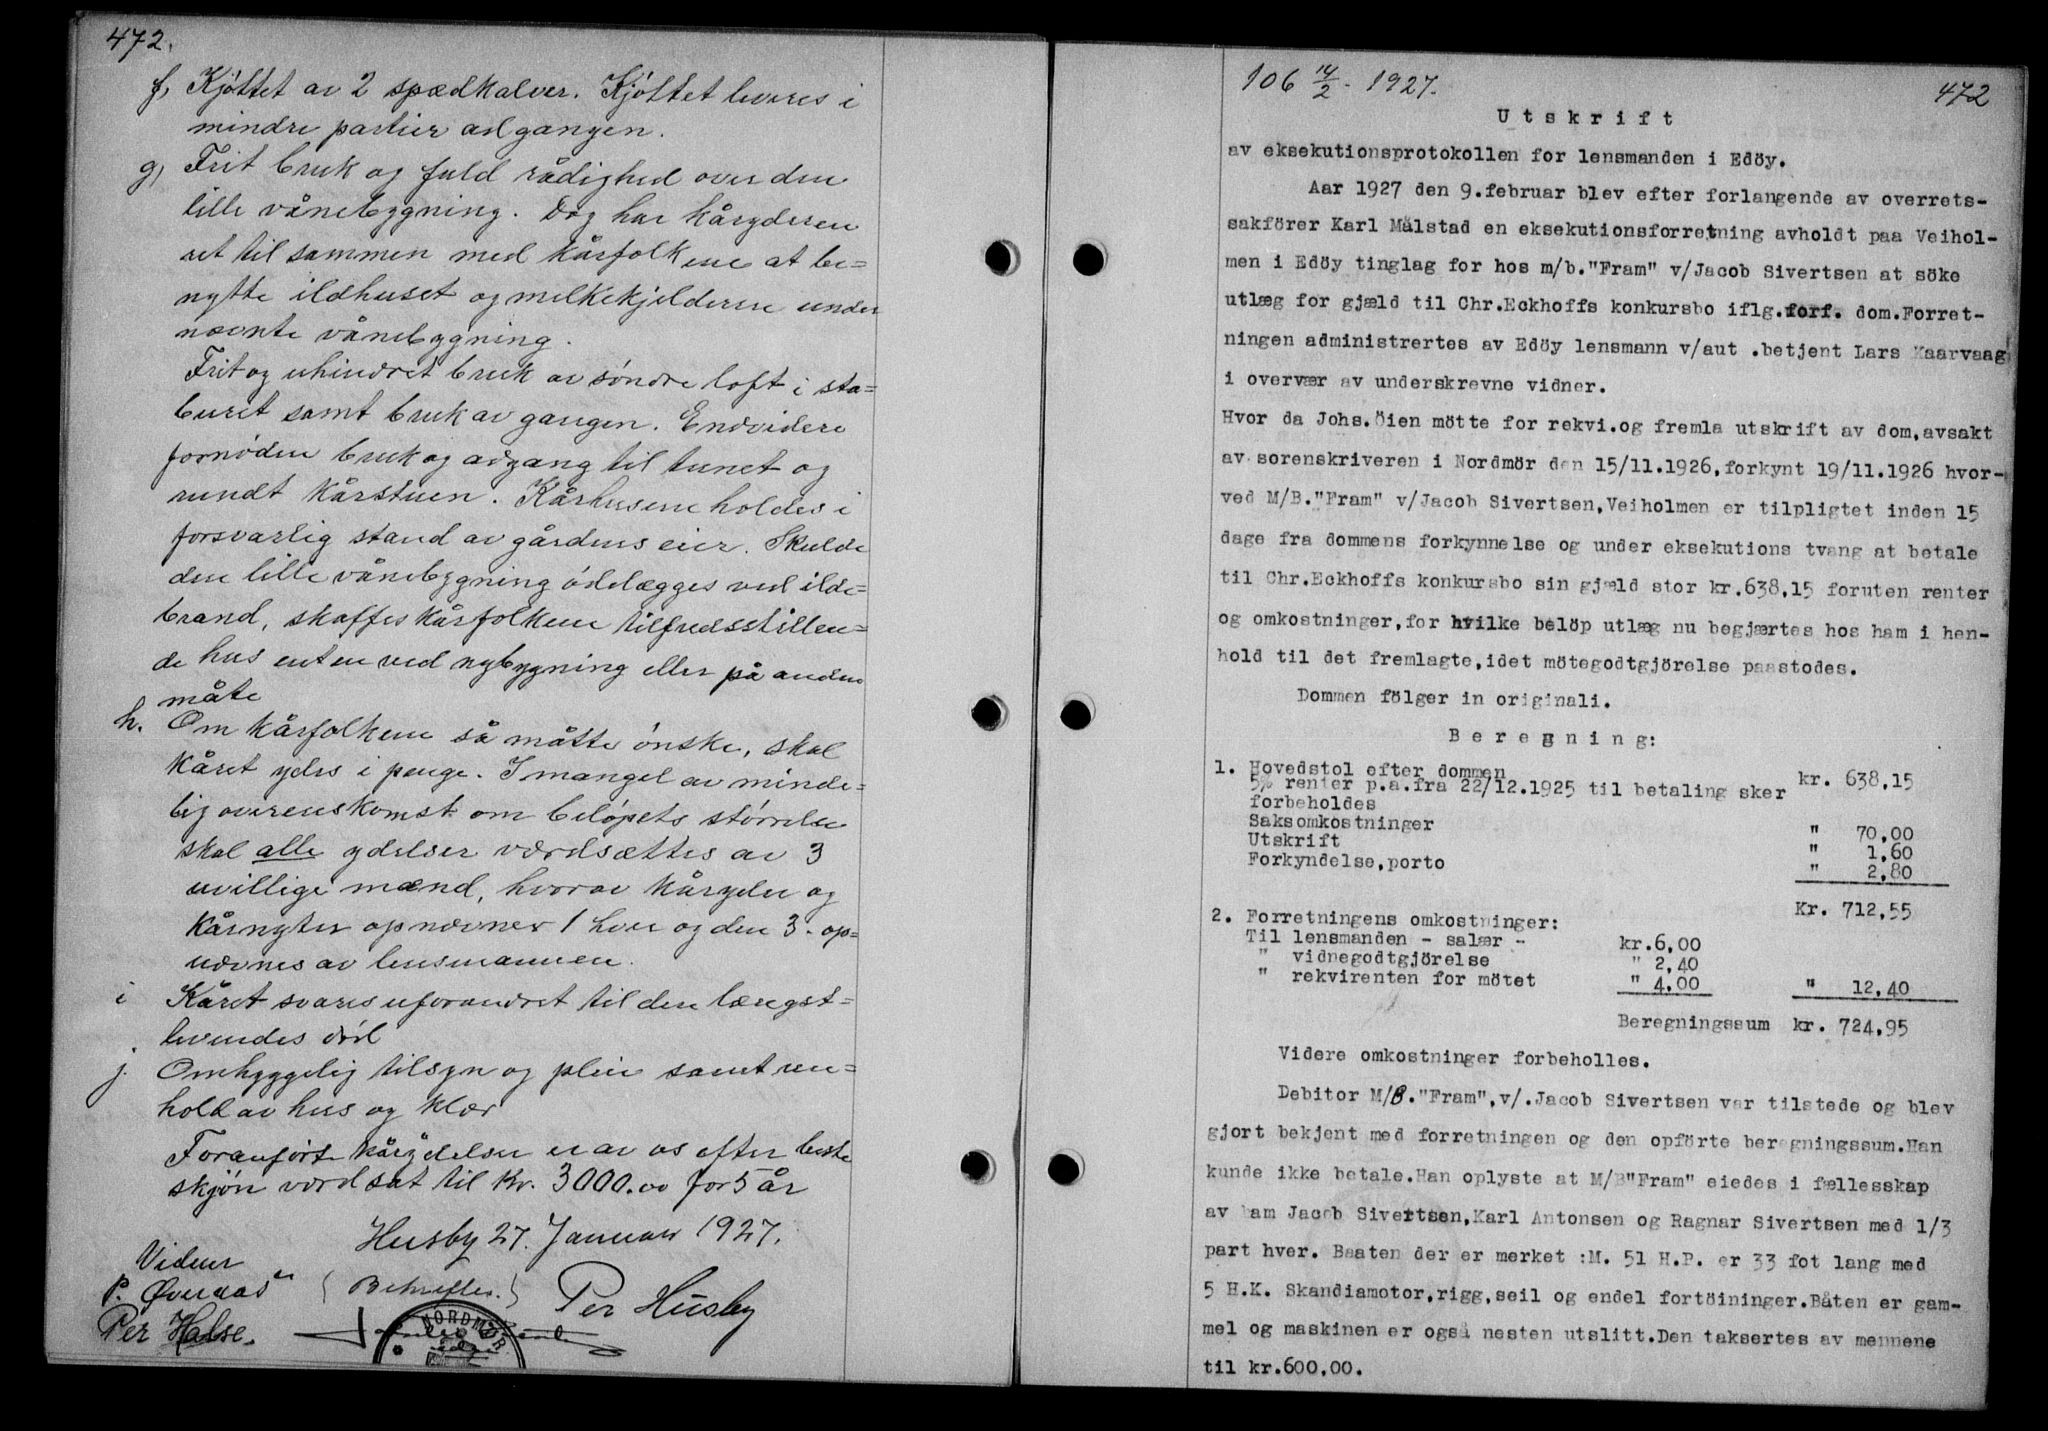 472.
f, Kjöttet av 2 spædkalver. Kjöttet leveres i
mindre partier ad gangen.
g, Frit bruk og fuld rådighed over den
lille vånebygning. Dog har kåryderen
ret til sammen med kårfolkene at be=
nytte ildhuset og melkekjelderen under
nævnte vånebygning.
Frit og uhindret bruk av söndre loft i sta=
buret samt bruk av gangen. Endvidere
fornöden bruk og adgang til tunet og
rundt kårstuen. Kårhusene holdes i
forsvarlig stand av gårdens eier. Skulde
den lille vånebygning ödelægges ved ilde=
brand, skaffes kårfolkene tilfredsstillen=
de hus enten ved nybygning eller på anden
måte
h. Om kårfolkene så måtte önske, skal
kåret ydes i penge. I mangel av minde=
lig overenskomst om belöpets störrelse
skal alle ydelser værdsættes av 3
uvillige mænd, hvorav kåryder og
kårnyter opnævner 1 hver og den 3. op=
nævnes av lensmannen.
i Kåret svares uforandret til den længst=
levendes död
j. Omhyggelig tilsyn og pleie samt ren=
hold av hus og klær
Foranförte kårydelser er av os efter beste
skjön værdsat til Kr. 3000.00 for 5 år
Husby 27. Januar 1927.
Vidner
P. Øveraas (Bekreftes.) Per Husby
Per Halse.
NORDMØR
106 14/2 - 1927. 472
Utskrift
av eksekutionsprotokollen for lensmanden i Edöy.
Aar 1927 den 9.februar blev efter forlangende av overrets-
sakförer Karl Målstad en eksekutionsforretning avholdt paa Veihol-
men i Edöy tinglag for hos m/b."Fram" v/Jacob Sivertsen at söke
utlæg for gjæld til Chr.Eckhoffs konkursbo iflg.forf. dom.Forret-
ningen administrertes av Edöy lensmann v/aut .betjent Lars Kaarvaag
i overvær av underskrevne vidner.
Hvor da Johs.Öien mötte for rekvi.og fremla utskrift av dom,avsakt
av sorenskriveren i Nordmör den 15/11.1926,forkynt 19/11.1926 hvor-
ved M/B."Fram" v/Jacob Sivertsen,Veiholmen er tilpligtet inden 15
dage fra dommens forkynnelse og under eksekutions tvang at betale
til Chr.Eckhoffs konkursbo sin gjæld stor kr.638,15 foruten renter
og omkostninger,for hvilke belöp utlæg nu begjærtes hos ham i hen-
hold til det fremlagte,idet mötegodtgjörelse paastodes.
Dommen fölger in originali.
Beregning:
1. Hovedstol efter dommen kr. 638,15
5% renter p.a.fra 22/12.1925 til betaling sker
forbeholdes
Saksomkostninger " 70,00
Utskrift " 1,60
Forkyndelse,porto " 2,80
Kr. 712,55
2. Forretningens omkostninger:
Til lensmanden - salær - kr.6,00
" vidnegodtgjörelse " 2,40
" rekvirenten for mötet " 4,00 " 12,40
Beregningssum kr. 724,95
Videre omkostninger forbeholles.
Debitor M/B."Fram",v/.Jacob Sivertsen var tilstede og blev
gjort bekjent med forretningen og den opförte beregningssum.Han
kunde ikke betale.Han oplyste at M/B"Fram" eiedes i fællesskap
av ham Jacob Sivertsen,Karl Antonsen og Ragnar Sivertsen med 1/3
part hver. Baaten der er merket :M. 51 H.P. er 33 fot lang med
5 H.K. Skandiamotor,rigg,seil og endel fortöininger.Båten er gam-
mel og maskinen er også nesten utslitt.Den taksertes av mennene
til kr.600,00.